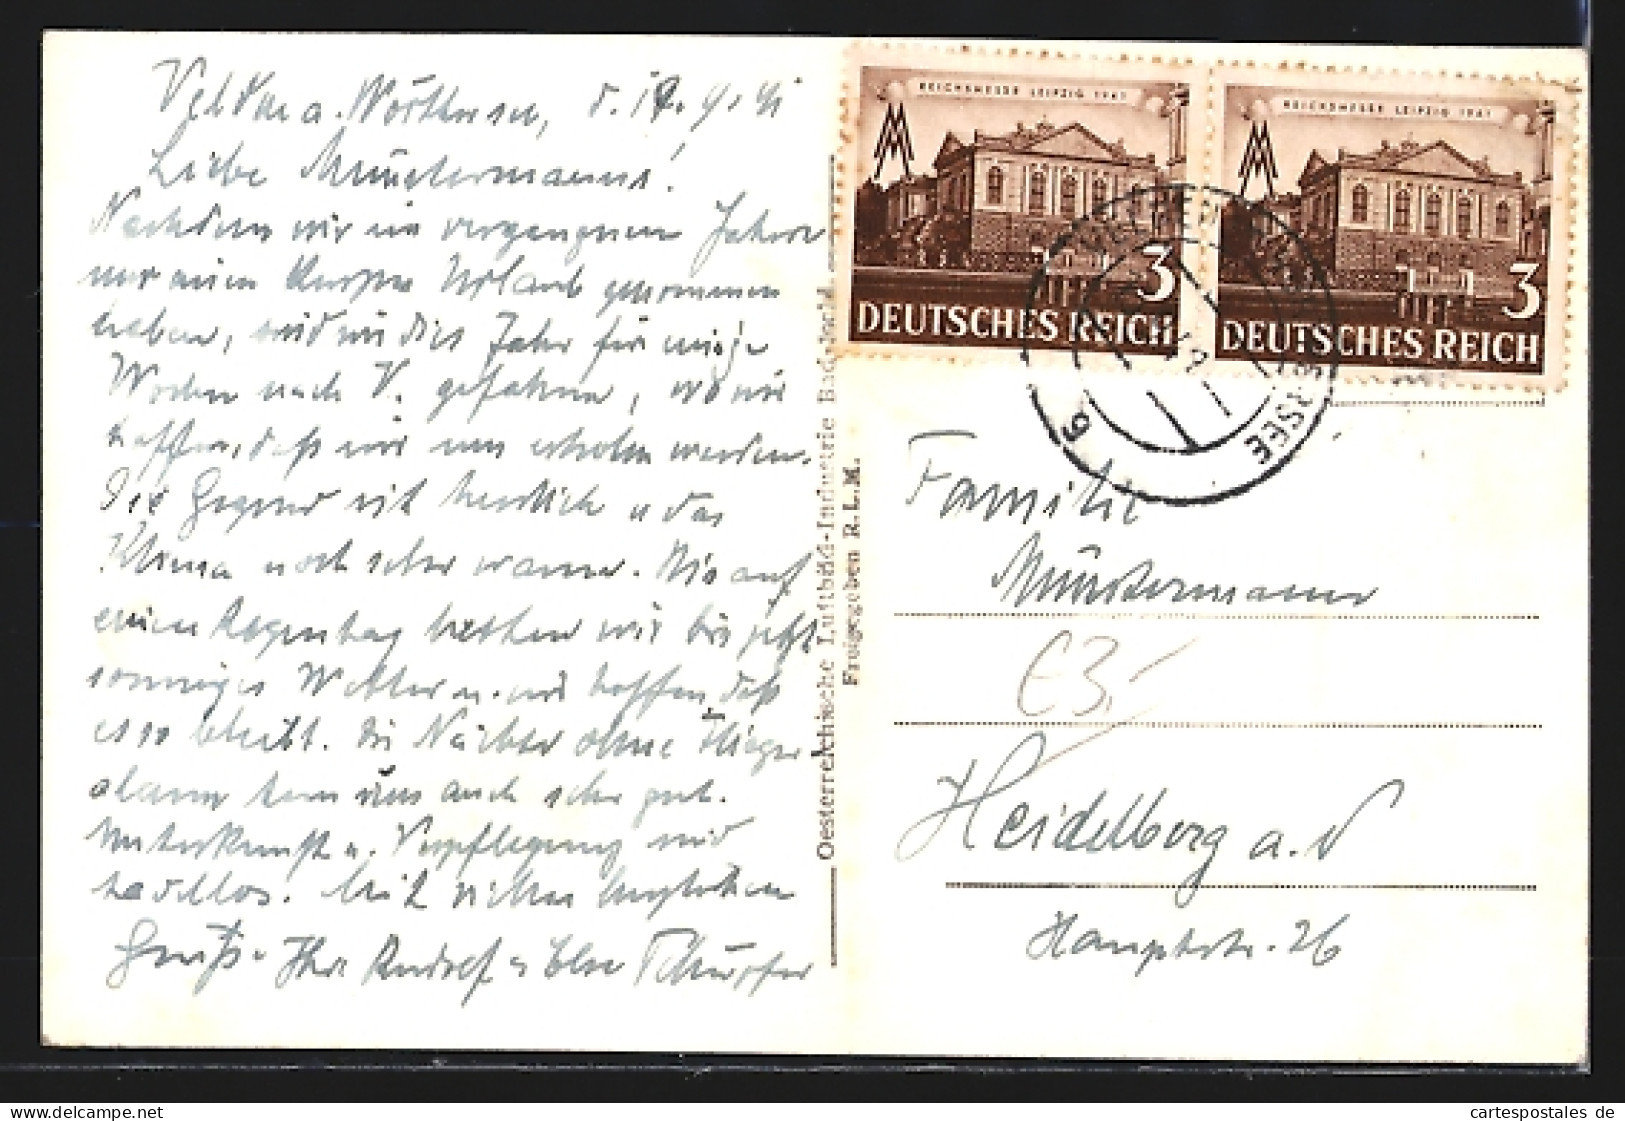 Velden a. Wörthersee, d. 12.9.41
Liebe Münstermanns!
Nachdem wir im vergangenen Jahre
nur einen kurzen Urlaub genommen
haben, sind wir dies Jahr für einige
Wochen nach V. gefahren, wo wir
hoffen, daß wir uns erholen werden.
Die Gegend ist herrlich u das
Klima noch sehr warm. Bis auf
einen Regentag hatten wir bis jetzt
sonniges Wetter u. wir hoffen, daß
es so bleibt. Die Nächte ohne Flieger-
alarm tun uns auch sehr gut.
Unterkunft u. Verpflegung sind
tadellos. Mit vielen herzlichen
Grüßen Ihre Rudolf u Else
Oesterreichische Luftbild-Industrie
Freigegeben R.L.M.
REICHSMESSE LEIPZIG 1941
3
DEUTSCHES REICH
REICHSMESSE LEIPZIG 1941
3
DEUTSCHES REICH
VELDEN AM WÖRTHERSEE
Familie
Münstermann
€3,-
Heidelberg a. N
Hauptstr. 26
cartespostales de